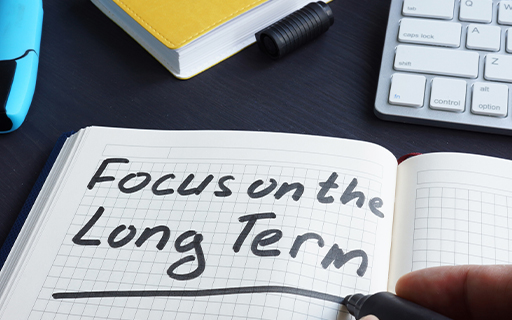 Q
W
caps lock
A
shift
Z
fn
control
alt
option
Focus on the
Long Term